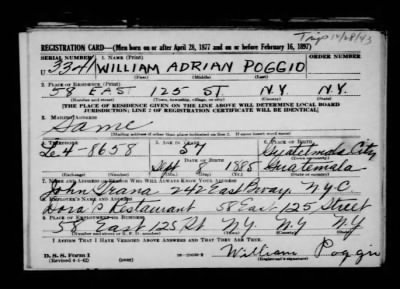 Trip 10/28/43
REGISTRATION CARD—(Men born on or after April 28, 1877 and on or before February 16, 1897)
SERIAL NUMBER 1. NAME (Print) ORDER NUMBER
U 3341 WILLIAM ADRIAN POGGIO
(First) (Middle) (Last)
2. PLACE OF RESIDENCE (Print)
58 EAST 125 ST N.Y. N.Y.
(Number and street) (Town, township, village, or city) (County) (State)
[THE PLACE OF RESIDENCE GIVEN ON THE LINE ABOVE WILL DETERMINE LOCAL BOARD
JURISDICTION; LINE 2 OF REGISTRATION CERTIFICATE WILL BE IDENTICAL]
3. MAILING ADDRESS
Same
[Mailing address if other than place indicated on line 2. If same insert word same]
4. TELEPHONE 5. AGE IN YEARS 6. PLACE OF BIRTH
Le 4-8658 57 Guatemala City
DATE OF BIRTH
Sept 8 1885 Guatemala
(Exchange) (Number) (Mo.) (Day) (Yr.) (State or country)
7. NAME AND ADDRESS OF PERSON WHO WILL ALWAYS KNOW YOUR ADDRESS
John 242 East Bway. NYC.
8. EMPLOYER'S NAME AND ADDRESS
Dora's Restaurant 58 East 125 Street
9. PLACE OF EMPLOYMENT OR BUSINESS
58 East 125 St NY. NY NY
(Number and street or R. F. D. number) (Town) (County) (State)
I AFFIRM THAT I HAVE VERIFIED ABOVE ANSWERS AND THAT THEY ARE TRUE.
D. S. S. Form 1
(Revised 4-1-42) William Poggio
(Registrant's signature)